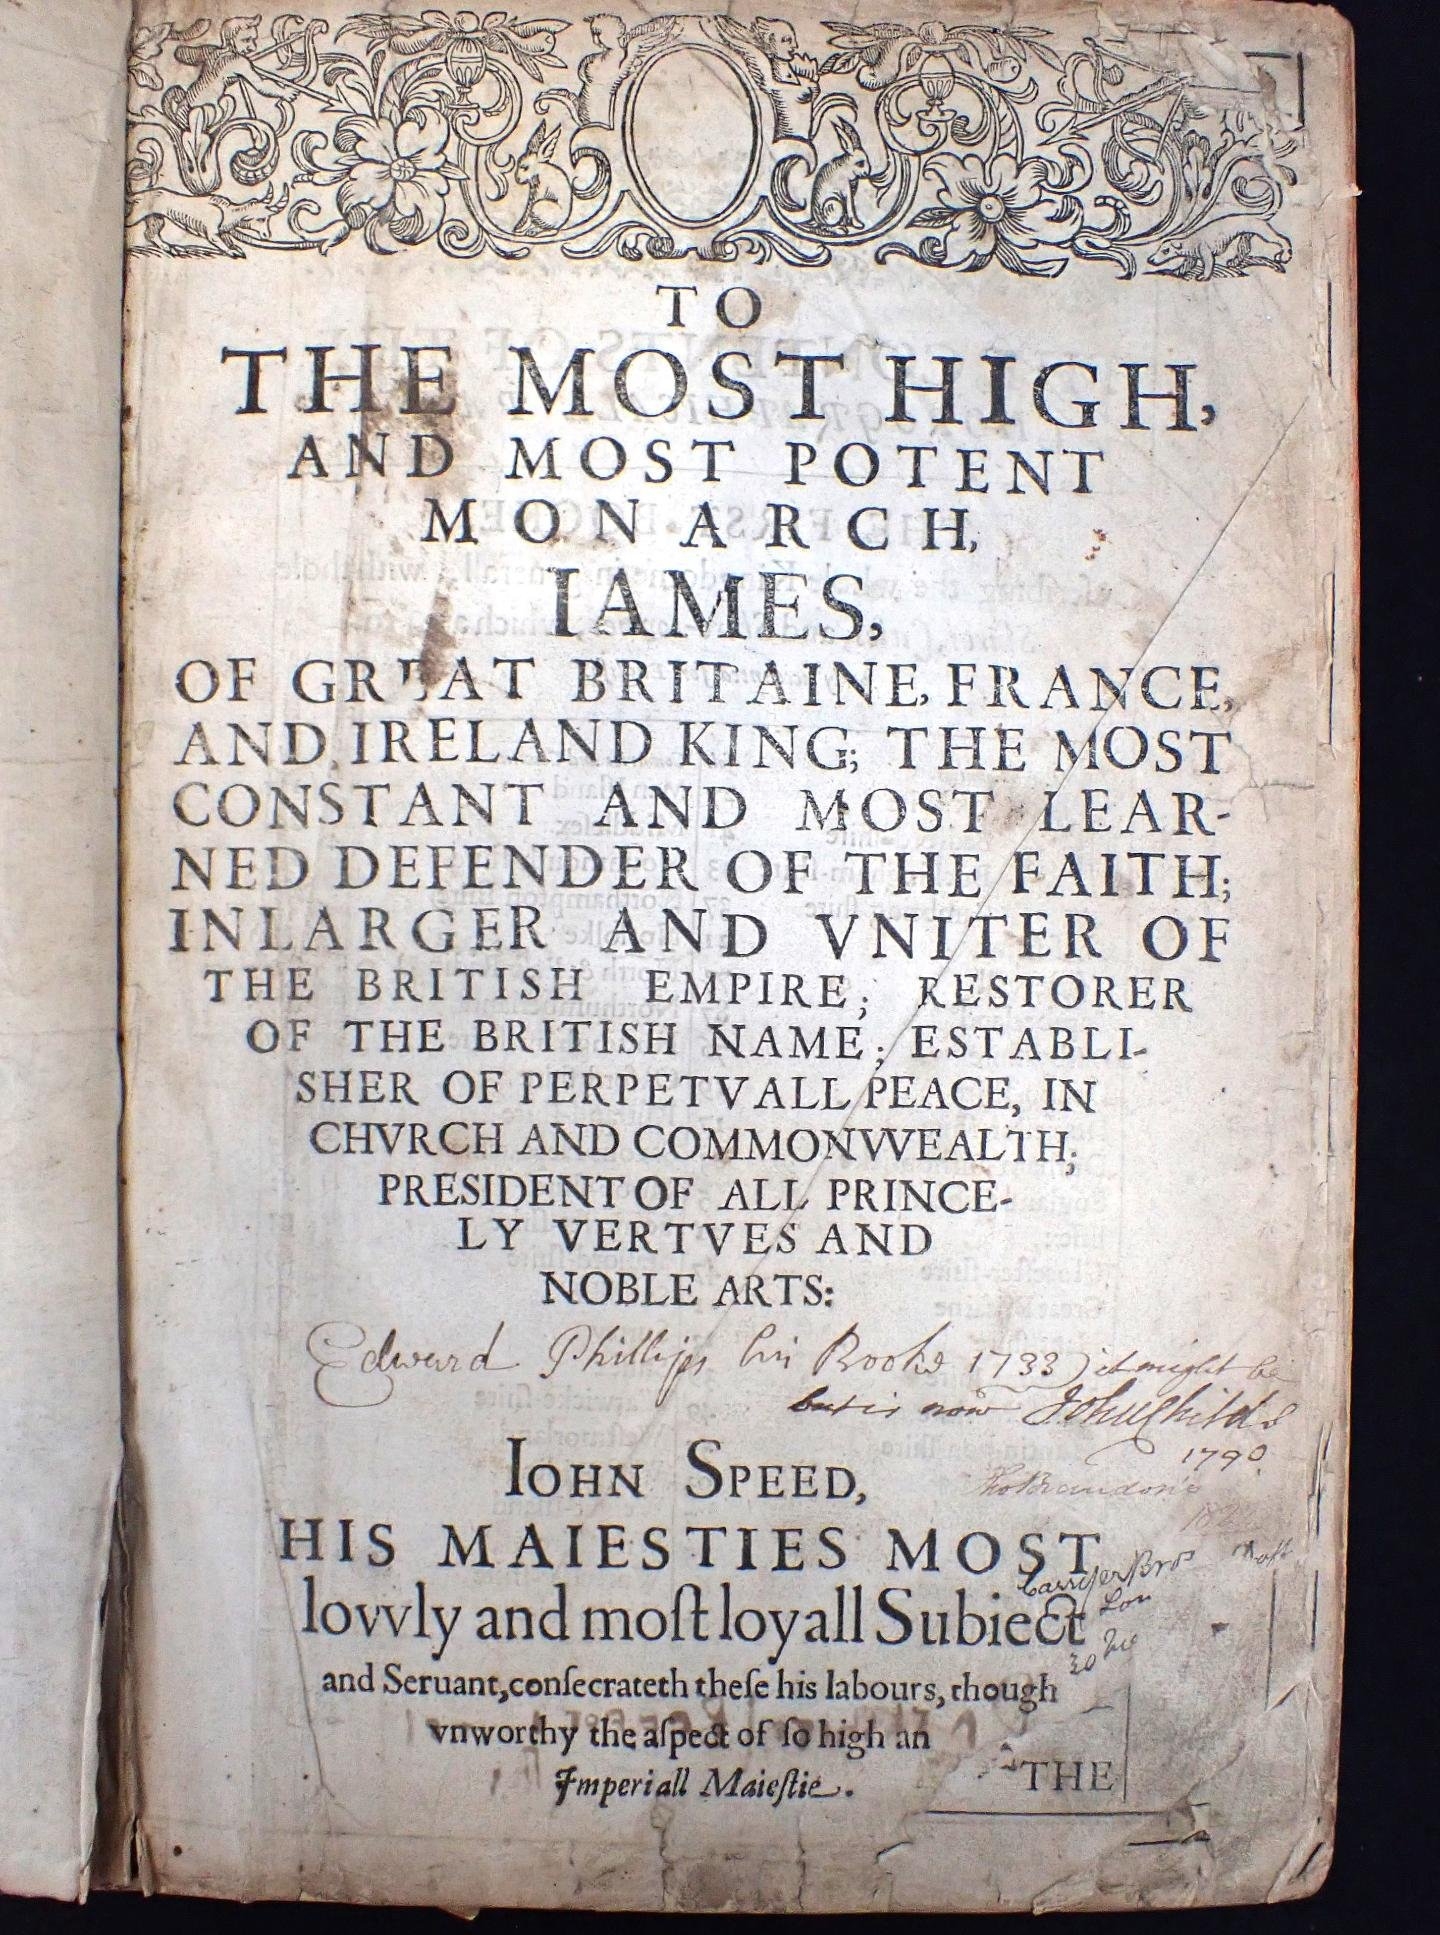 TO
THE MOST HIGH,
AND MOST POTENT
MONARCH,
IAMES,
OF GREAT BRITAINE, FRANCE,
AND IRELAND KING; THE MOST
CONSTANT AND MOST LEAR-
NED DEFENDER OF THE FAITH;
INLARGER AND VNITER OF
THE BRITISH EMPIRE; RESTORER
OF THE BRITISH NAME; ESTABLI-
SHER OF PERPETVALL PEACE, IN
CHVRCH AND COMMONVVEALTH;
PRESIDENT OF ALL PRINCE-
LY VERTVES AND
NOBLE ARTS:
Edward Phillips his Booke 1733) it might be
but is now John Childs
1790
Tho Brandon's
IOHN SPEED,
HIS MAIESTIES MOST
Bros
lovvly and moſt loyall Subiect
Lon
30
and Seruant, conſecrateth theſe his labours, though
vnworthy the aſpect of ſo high an
Imperiall Maieſtie.
THE